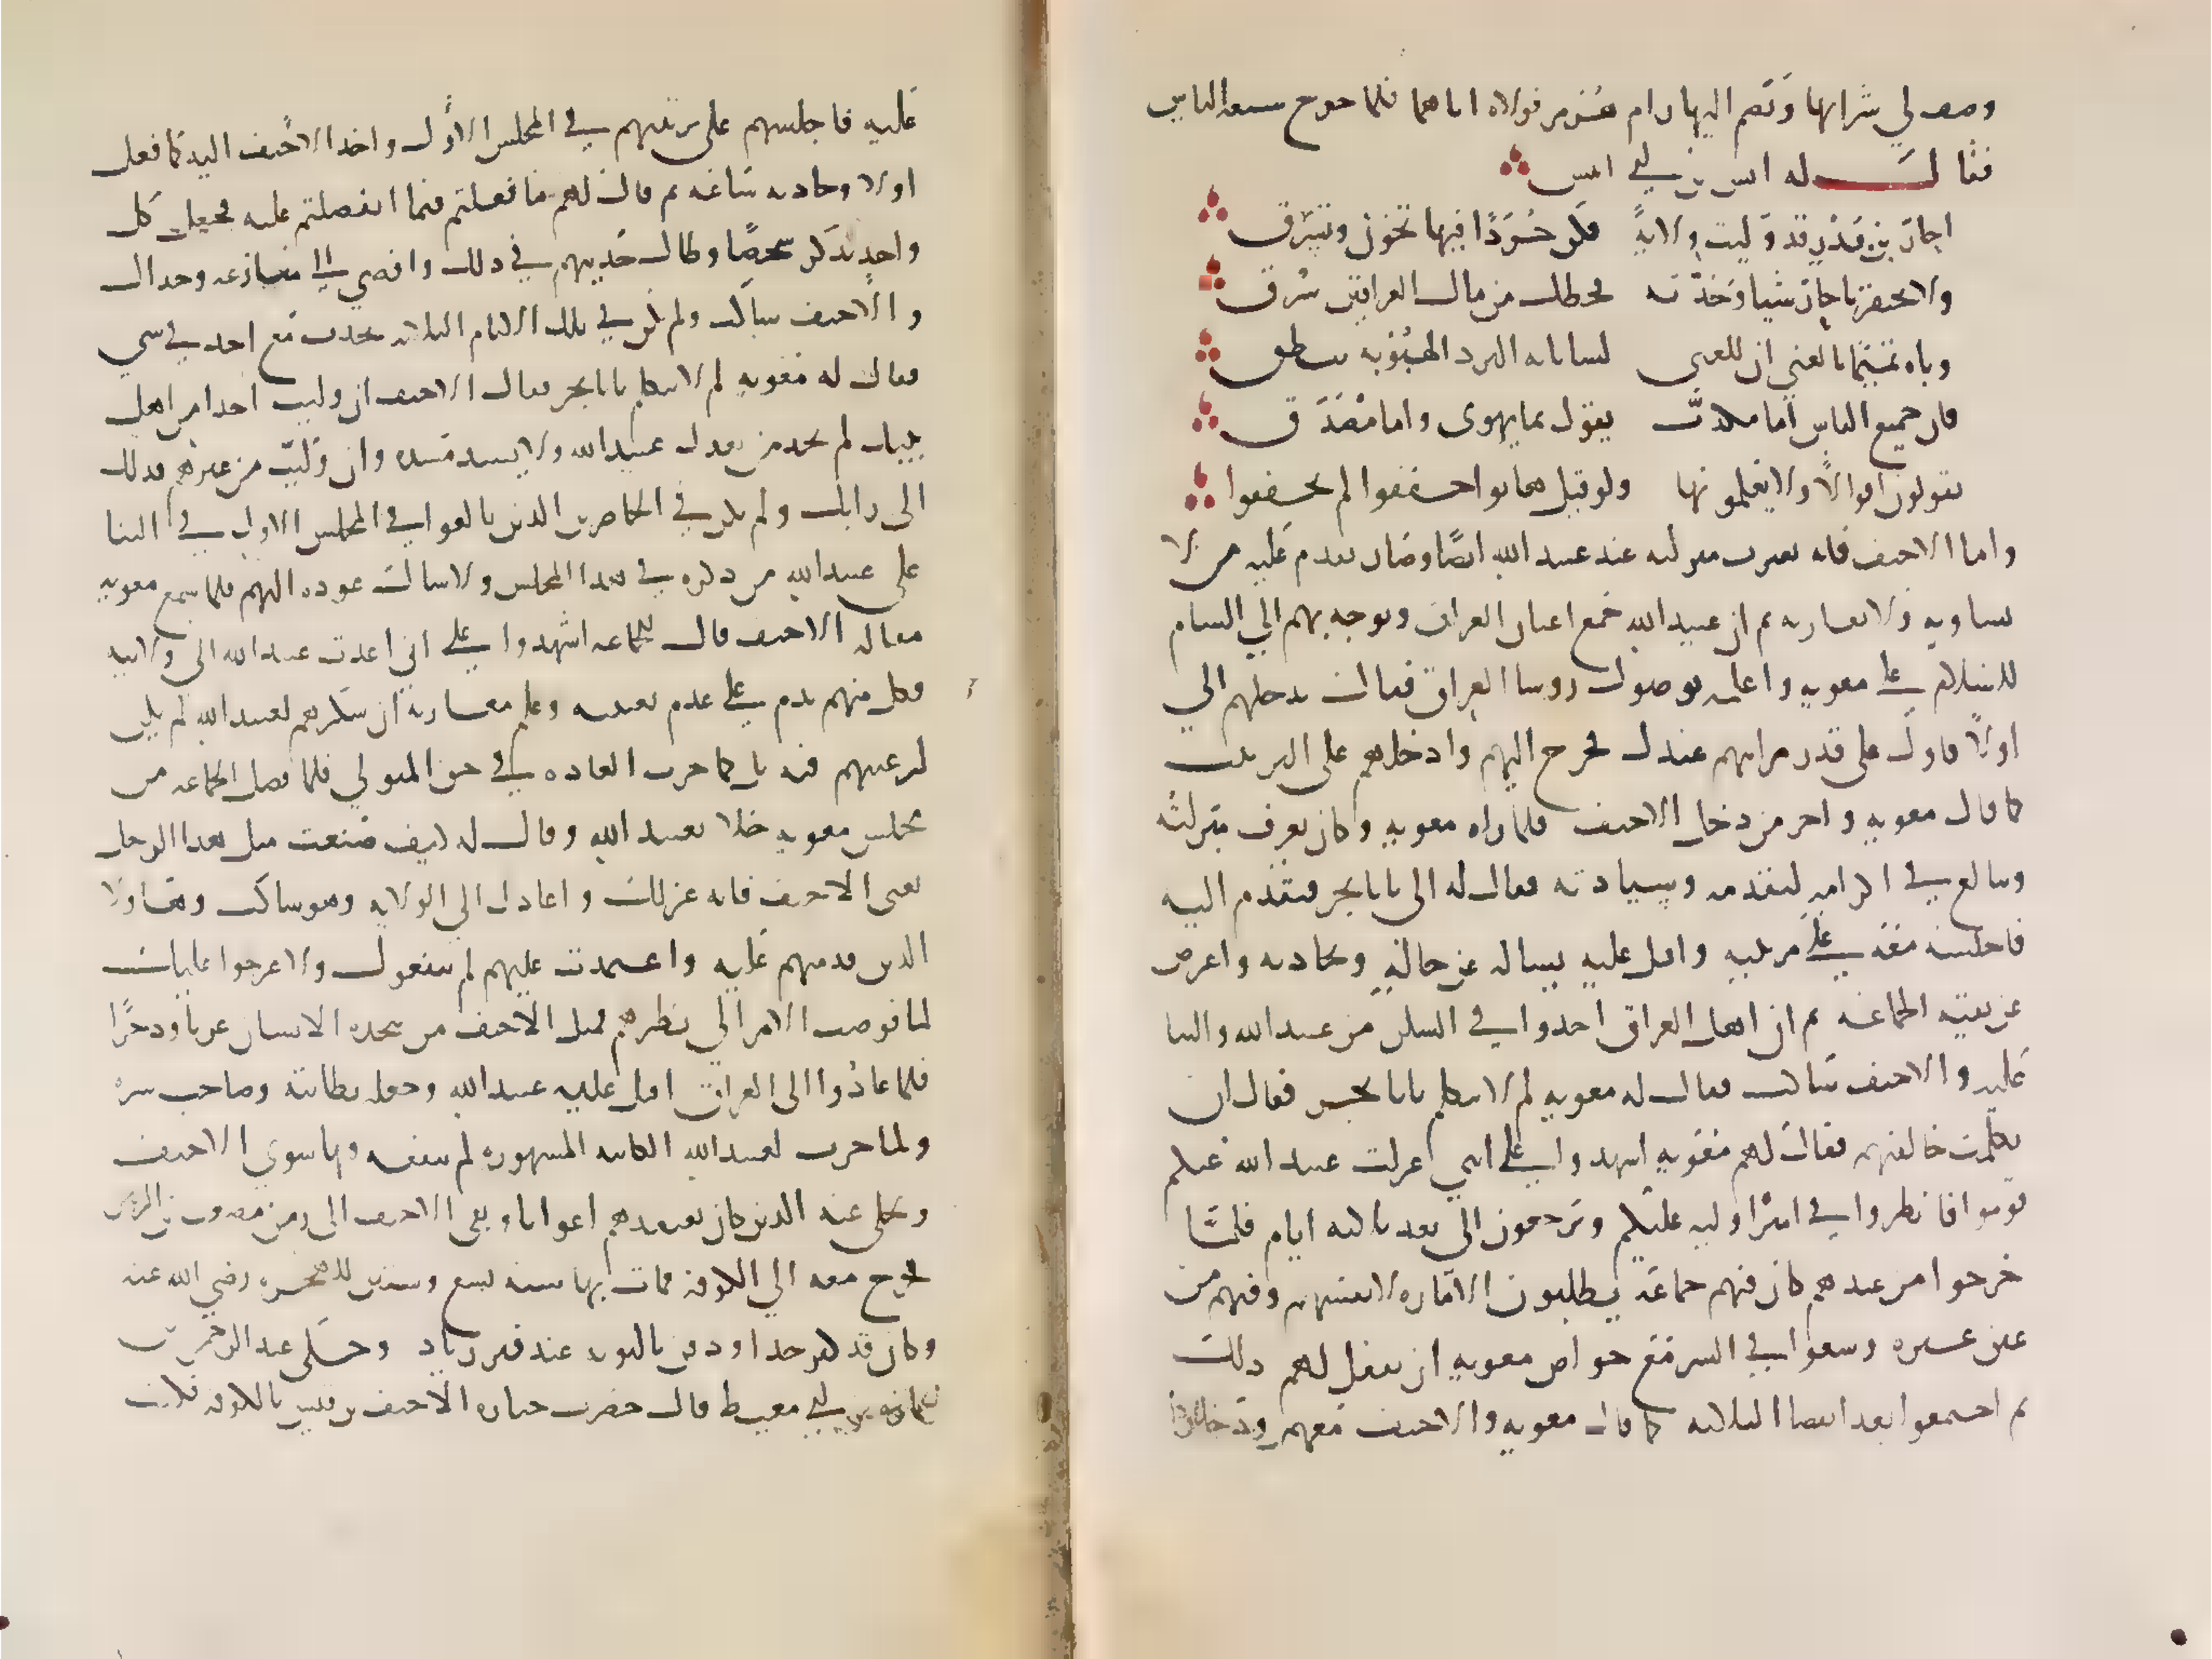 وصف لي شرابها وتضم اليها رام هرمز فولاه اياهما فلما خرج شيعه الناس
فقال له انس بن ابي انيس
احار بن بدر قد وليت ولاية فكن جرذا فيها تخون وتسرق
ولا تحقرن يا حار شيا وجدته فحظك من مال العراقين سرق
وباه تميما بالغنى ان للغنى لسانا به المرء الهيوبة ينطق
فان جميع الناس اما مكذب يقول بما يهوى واما مصدق
يقولون اقوالا ولا يعلمونها ولو قيل هاتوا حققوا لم يحققوا
واما الاحنف فانه تغيرت منزلته عند عبيد الله ايضا وصار يقدم عليه من لا
يساويه ولا يقاربه ثم ان عبيد الله جمع اعيان العراق وتوجه بهم الى الشام
للسلام على معويه واعلمه بوصول روسا العراق فقال ادخلهم الي
اولا فاول على قدر مراتبهم عندك فخرج اليهم وادخلهم على الترتيب
كما قال معويه واخر من دخل الاحنف فلما راه معويه وكان يعرف منزلته
ويبالغ في اكرامه لتقدمه وسيادته فقال له الي يا بابحر فتقدم اليه
فاجلسه معه على مرتبته واقبل عليه يساله عن حاله ويحادثه واعرض
عن بقيه الجماعه ثم ان اهل العراق اخذوا في الشكر من عبيد الله والثنا
عليه والاحنف ساكت فقال له معويه لم لا تتكلم يابا بحر فقال ان
تكلمت خالفتهم فقال لهم معويه اشهدوا علي انني عزلت عبيد الله عنكم
قوموا فانظروا في امير اوليه عليكم وترجعون الي بعد ثلاثه ايام فلما
خرجوا من عنده كان فيهم جماعه يطلبون الاماره لانفسهم وفيهم من
عين غيره وسعوا في السر مع خواص معويه ان يفعل لهم ذلك
ثم اجتمعوا بعد انقضا الثلاثه كما قال معويه والاحنف معهم ودخلوا
عليه فاجلسهم على ترتيبهم في المجلس الاول واخذ الاحنف اليه كما فعل
اولا وحادثه ساعه ثم قال لهم ما فعلتم فيما انفصلتم عليه فجعل كل
واحد يذكر شخصا وطال حديثهم في ذلك وافضى الى منازعه وجدال
والاحنف ساكت ولم يكن في تلك الايام الثلاثه تحدث مع احد في شي
فقال له معويه لم لا تتكلم يابا بحر فقال الاحنف ان وليت احدا من اهل
بيتك لم تجد من يعدل عبيد الله ولا يسد مسده وان وليت من غيرهم فذلك
الى رايك ولم يكن في الحاضرين الذين بالغوا في المجلس الاول في الثنا
على عبيد الله من ذكره في هذا المجلس ولا سال عوده اليهم فلما سمع معويه
مقاله الاحنف قال للجماعه اشهدوا علي اني اعدت عبيد الله الى ولايته
فكل منهم ندم على عدم تعيينه وعلم معاويه ان شكرهم لعبيد الله لم يكن
لرغبتهم فيه بل كما جرت العاده في حق المتولي فلما فصل الجماعه من
مجلس معويه خلا بعبيد الله وقال له كيف ضيعت مثل هذا الرجل
يعني الاحنف فانه عزلك واعادك الى الولايه وهو ساكت وهاولا
الذين قدمتهم عليه واعتمدت عليهم لم ينفعوك ولا عرجوا عليك
لما فوضت الامر الى نظرهم فمثل الاحنف من يتخذه الانسان عونا وذخرا
فلما عادوا الى العراق اقبل عليه عبيد الله وجعله بطانته وصاحب سره
ولما جرت لعبيد الله الكاينه المشهوره لم ينفعه فيها سوى الاحنف
وتخلى عنه الذين كان يعتقدهم اعوانا وبقي الاحنف الى زمن مصعب بن الزبير
فخرج معه الى الكوفه فمات بها سنه تسع وستين للهجره رضي الله عنه
وكان قد كبر جدا ودفن بالثويه عند قبر زياد وحكى عبد الرحمن بن
عماره بن ابي معيط قال حضرت جنازه الاحنف بن قيس بالكوفه فكنت